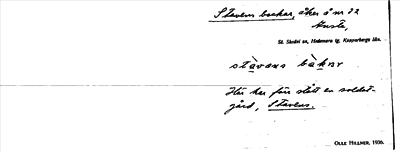 Stavens backar, åker å nr 22
Husta,
St. Skedvi sn, Hedemora tg, Kopparbergs län.
stàvans bàkar
Här har förr stått en soldat-
gård, Stavens.
OLLE HILLNER, 1936.